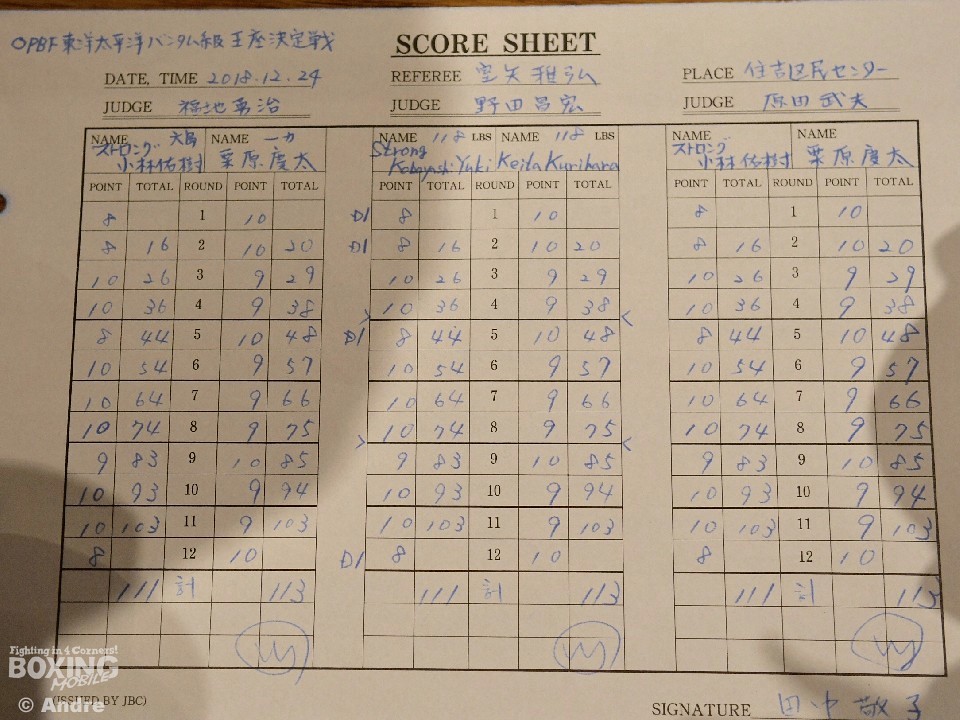 OPBF東洋太平洋バンタム級王座決定戦
SCORE SHEET
DATE, TIME 2018.12.24 REFEREE PLACE 住吉区民センター
JUDGE 福地勇治 JUDGE 野田昌宏 JUDGE 原田武夫
NAME 大阪 NAME 一力 NAME 118 LBS NAME 118 LBS NAME NAME
ストロング小林佑樹 栗原慶太 Strong Kobayashi Yuki Keita Kurihara ストロング小林佑樹 栗原慶太
POINT TOTAL ROUND POINT TOTAL POINT TOTAL ROUND POINT TOTAL POINT TOTAL ROUND POINT TOTAL
8 1 10 D1 8 1 10 8 1 10
8 16 2 10 20 D1 8 16 2 10 20 8 16 2 10 20
10 26 3 9 29 10 26 3 9 29 10 26 3 9 29
10 36 4 9 38 > 10 36 4 9 38 < 10 36 4 9 38
8 44 5 10 48 D1 8 44 5 10 48 8 44 5 10 48
10 54 6 9 57 10 54 6 9 57 10 54 6 9 57
10 64 7 9 66 10 64 7 9 66 10 64 7 9 66
10 74 8 9 75 > 10 74 8 9 75 < 10 74 8 9 75
9 83 9 10 85 9 83 9 10 85 9 83 9 10 85
10 93 10 9 94 10 93 10 9 94 10 93 10 9 94
10 103 11 9 103 10 103 11 9 103 10 103 11 9 103
8 12 10 D1 8 12 10 8 12 10
111 計 113 111 計 113 111 計 113
Fighting in 4 Corners!
BOXING
MOBILE
(ISSUED BY JBC)
© Andre
SIGNATURE 田中敬子